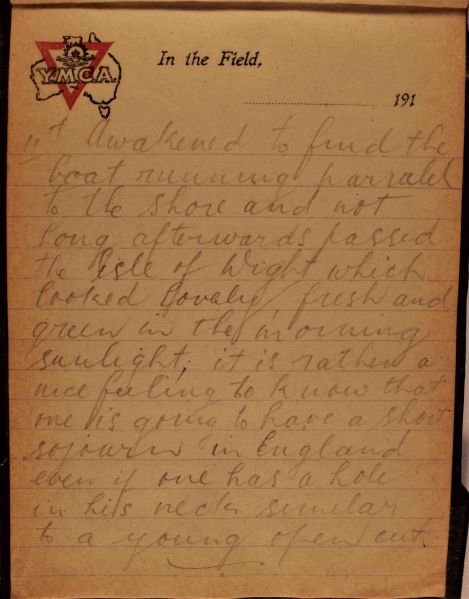 Y.M.C.A.
In the Field,
191
11th Awakened to find the
boat running parralel
to the shore and not
long afterwards passed
the Isle of Wight which
looked lovely fresh and
green in the morning
sunlight; it is rather a
nice feeling to know that
one is going to have a short
sojourn in England
even if one has a hole
in his neck similar
to a young open cut.